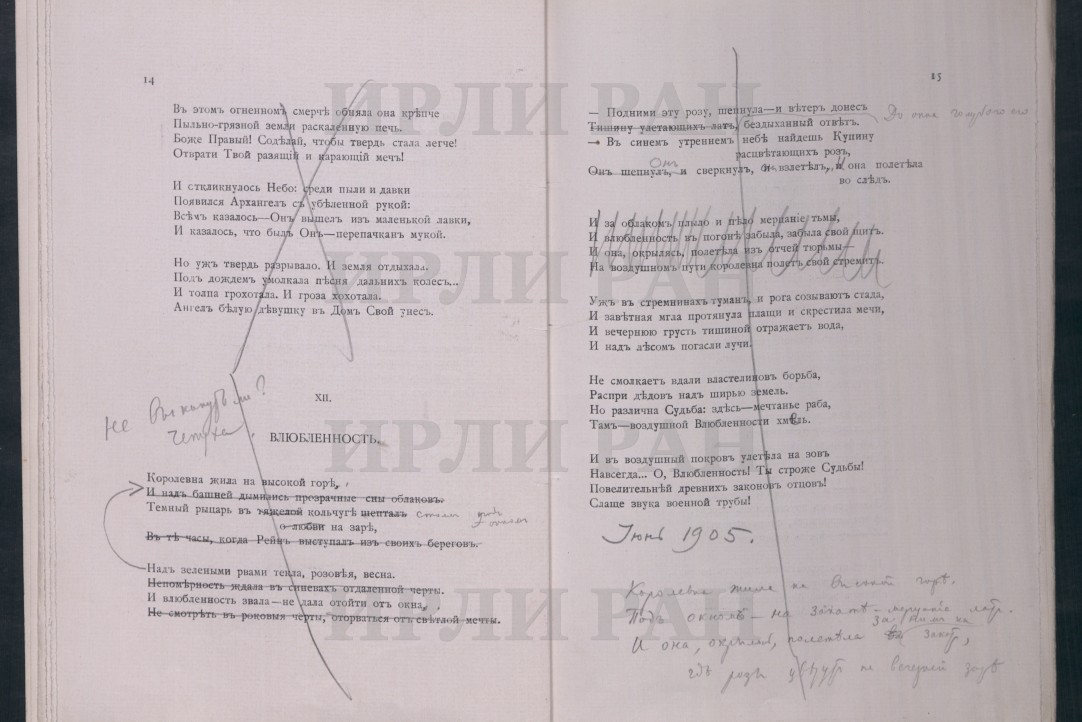 14
Въ этомъ огненномъ смерчѣ обняла она крѣпче
Пыльно-грязной земли раскаленную печь.
Боже Правый! Содѣлай, чтобы твердь стала легче!
Отврати Твой разящій и карающій мечъ!
И откликнулось Небо: среди пыли и давки
Появился Архангелъ съ убѣленной рукой:
Всѣмъ казалось—Онъ вышелъ изъ маленькой лавки,
И казалось, что былъ Онъ—перепачканъ мукой.
Но ужъ твердь разрывало. И земля отдыхала.
Подъ дождемъ умолкала пѣсня дальнихъ колесъ...
И толпа грохотала. И гроза хохотала.
Ангелъ бѣлую дѣвушку въ Домъ Свой унесъ.
не выкинуть ли?
чепуха.
XII.
ВЛЮБЛЕННОСТЬ.
Королевна жила на высокой горѣ,
И надъ башней дымились прозрачные сны облаковъ.
Темный рыцарь въ тяжелой кольчугѣ шепталъ стоялъ подъ окномъ
о любви на зарѣ,
Въ тѣ часы, когда Рейнъ выступалъ изъ своихъ береговъ.
Надъ зелеными рвами текла, розовѣя, весна.
Непомѣрность ждала въ синевахъ отдаленной черты.
И влюбленность звала—не дала отойти отъ окна,
Не смотрѣть въ роковыя черты, оторваться отъ свѣтлой мечты.
15
— Подними эту розу, шепнула—и вѣтеръ донесъ
До окна голубого его
Тишину улетающихъ латъ, бездыханный отвѣтъ.
— Въ синемъ утреннемъ небѣ найдешь Купину
расцвѣтающихъ розъ,
Онъ
Онъ шепнулъ, и сверкнулъ, и взлетѣлъ, и она полетѣла
во слѣдъ.
И за облакомъ плыло и пѣло мерцаніе тьмы,
И влюбленность въ погонѣ забыла, забыла свой щитъ.
И она, окрылясь, полетѣла изъ отчей тюрьмы—
На воздушномъ пути королевна полетъ свой стремитъ.
Ужъ въ стремнинахъ туманъ, и рога созываютъ стада,
И завѣтная мгла протянула плащи и скрестила мечи,
И вечернюю грусть тишиной отражаетъ вода,
И надъ лѣсомъ погасли лучи.
Не смолкаетъ вдали властелиновъ борьба,
Распри дѣдовъ надъ ширью земель.
Но различна Судьба: здѣсь—мечтанье раба,
Тамъ—воздушной Влюбленности хмѣль.
И въ воздушный покровъ улетѣла на зовъ
Навсегда... О, Влюбленность! Ты строже Судьбы!
Повелительнѣй древнихъ законовъ отцовъ!
Слаще звука военной трубы!
Іюнь 1905.
Королевна жила на высокой горѣ.
Подъ окномъ — на закатѣ — мерцаніе латъ.
за нимъ на
И она, окрылясь, полетѣла въ закатъ,
гдѣ розы цвѣтутъ на вечерней зарѣ
ИРЛИ РАН
ИРЛИ РАН
ИРЛИ РАН
ИРЛИ РАН